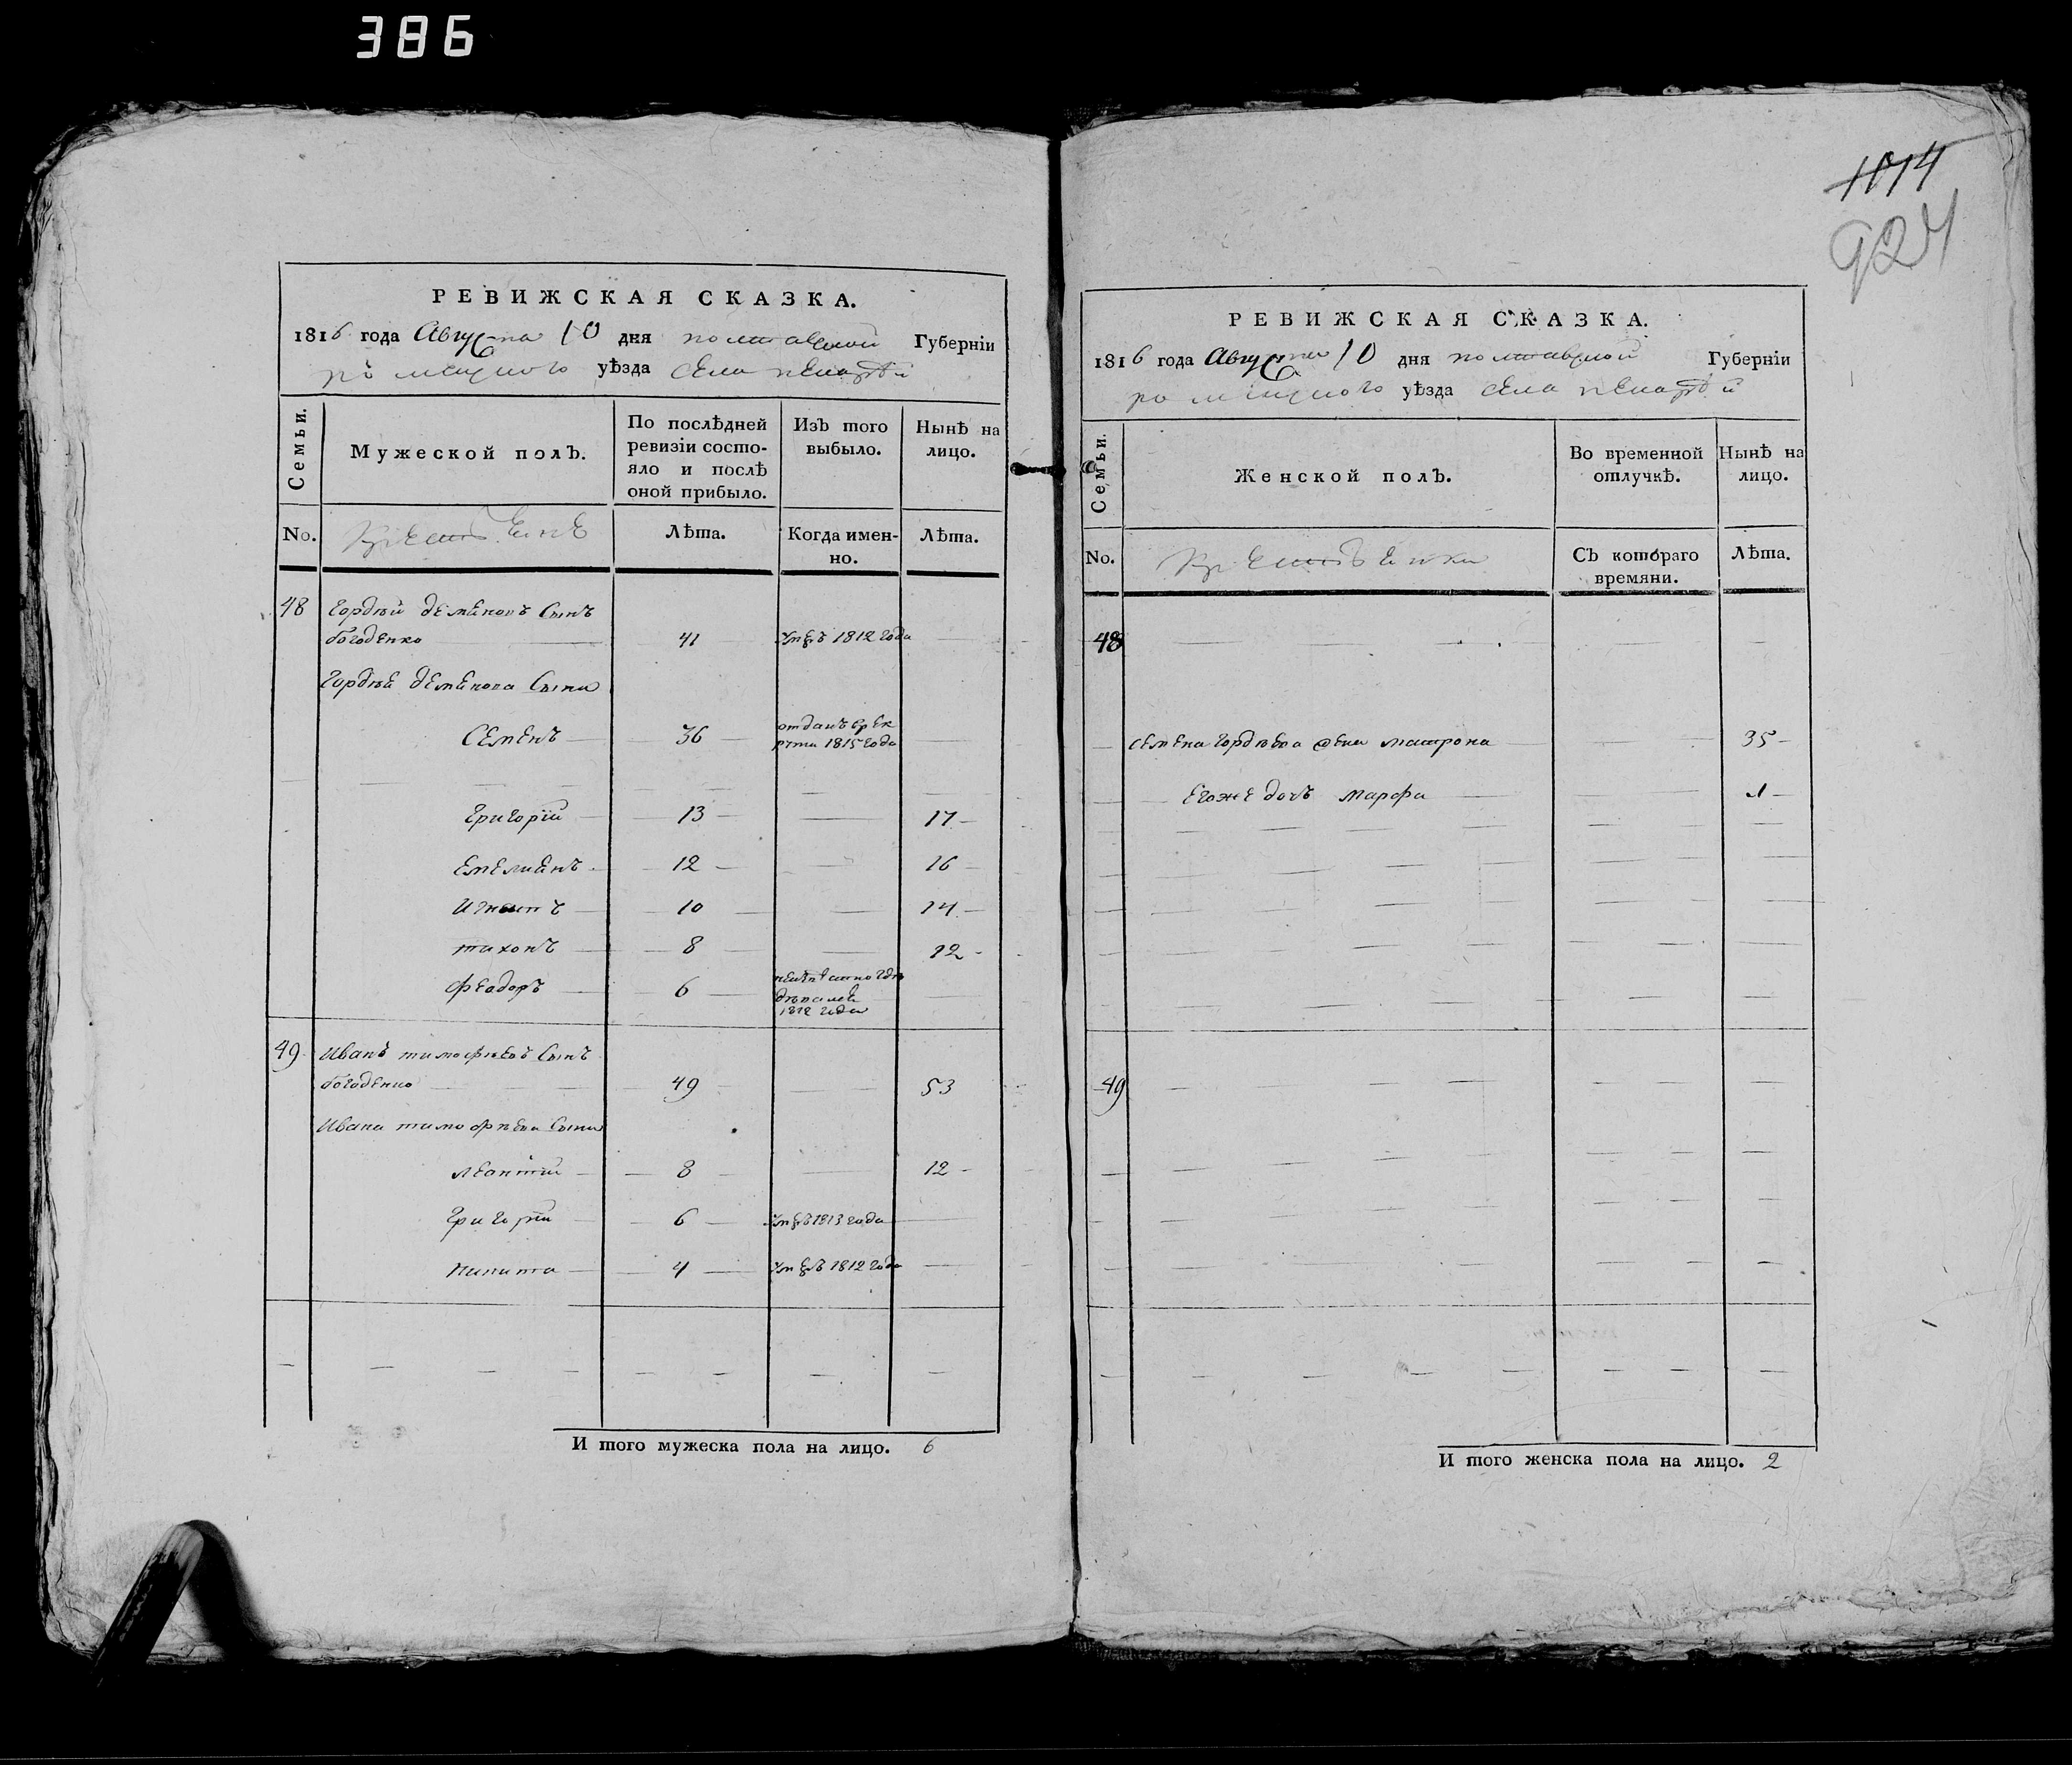 386
1014
924
РЕВИЖСКАЯ СКАЗКА.
1816 года Августа 10 дня полтавской Губерніи
роменскаго уѣзда села
Семьи.
Мужеской полЪ.
По послѣдней ревизіи состо-
яло и послѣ
оной прибыло.
ИзЪ того
выбыло.
Нынѣ на
лицо.
No.
Лѣта.
Когда имен-
но.
Лѣта.
48 Гордѣй деменовъ Сынъ
богоденко 41 умре 1812 года
Гордѣя деменова Сыни
Семенъ 36 отданъ врек
рути 1815 года
Григорій 13 17
Емелианъ 12 16
Игнатъ 10 14
тихонъ 8 12
Феодоръ 6
1812 года
49 Иванъ тимофѣевъ Сынъ
богоденко 49 53
Ивана тимофѣева Сыни
леонтій 8 12
Григорій 6 умре 1813 года
никита 4 умре 1812 года
И того мужеска пола на лицо. 6
РЕВИЖСКАЯ СКАЗКА.
1816 года Августа 10 дня полтавской Губерніи
роменскаго уѣзда села
Семьи.
Женской полЪ.
Во временной
отлучкѣ.
Нынѣ на
лицо.
No.
СЪ котораго
времяни.
Лѣта.
48
семена Гордѣева жена матрона 35
Егоже дочь марфа 1
49
И того женска пола на лицо. 2